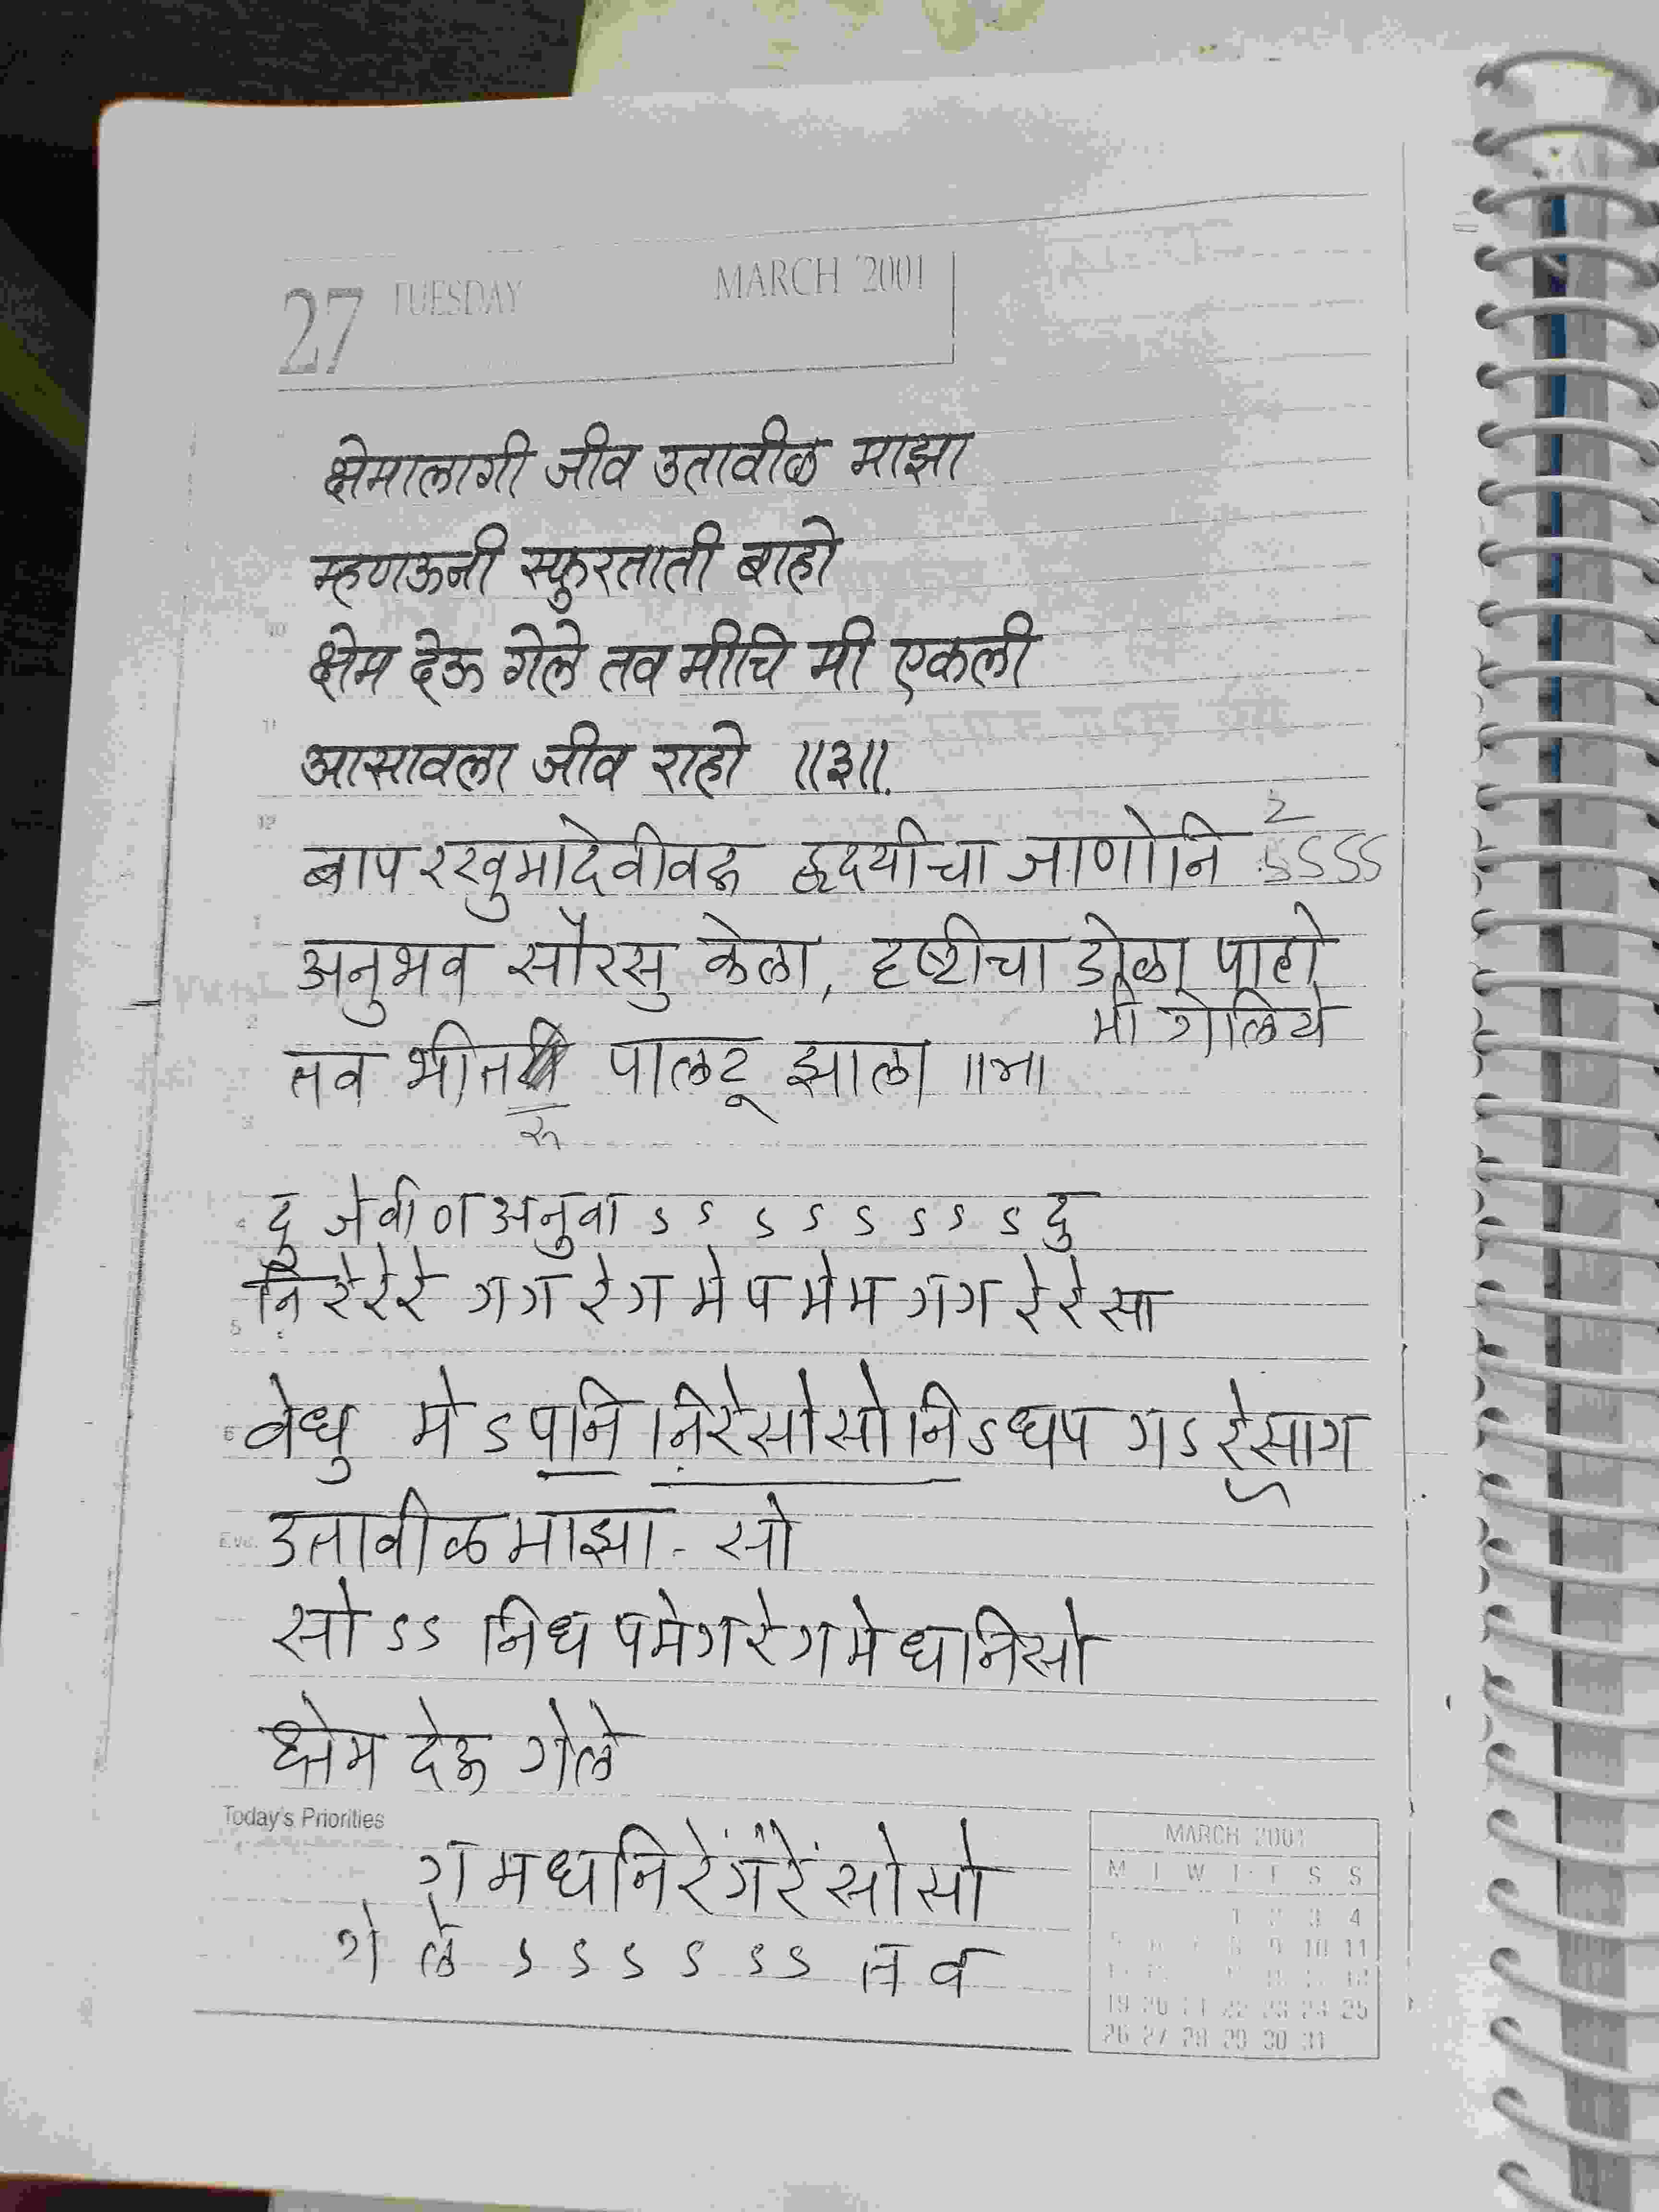 27 TUESDAY MARCH 2001
क्षेमालागी जीव उतावीळ माझा
म्हणऊनी स्फुरताती बाहो
क्षेम देऊ गेले तव मीचि मी एकली
आसावला जीव राहो ॥३॥
2
बाप रखुमादेवीवरू हृदयीचा जाणोनि ऽऽऽऽ
अनुभव सौरसु केला, दृष्टीचा डोळा पाहो
मी गेलिये
तव भीत पालटू झाला ॥४॥
रू
दु जेवीण अनुवा ऽ ऽ ऽ ऽ ऽ ऽ ऽ ऽ दु
नि रे रे रे ग ग रे ग मे प मे म ग ग रे रे सा
वेधु मे ऽ प नि नि रे सो सो नि ऽ ध प ग ऽ रे सा ग
उतावीळ माझा - सो
सो ऽऽ नि ध प मे ग रे ग मे ध नि सो
क्षेम देऊ गेले
Today's Priorities
ग म ध नि रें गं रें सो सो
गे ले ऽ ऽ ऽ ऽ ऽ ऽ त व
MARCH 2001
M T W T F S S
1 2 3 4
5 6 7 8 9 10 11
19 20 21 22 23 24 25
26 27 28 29 30 31